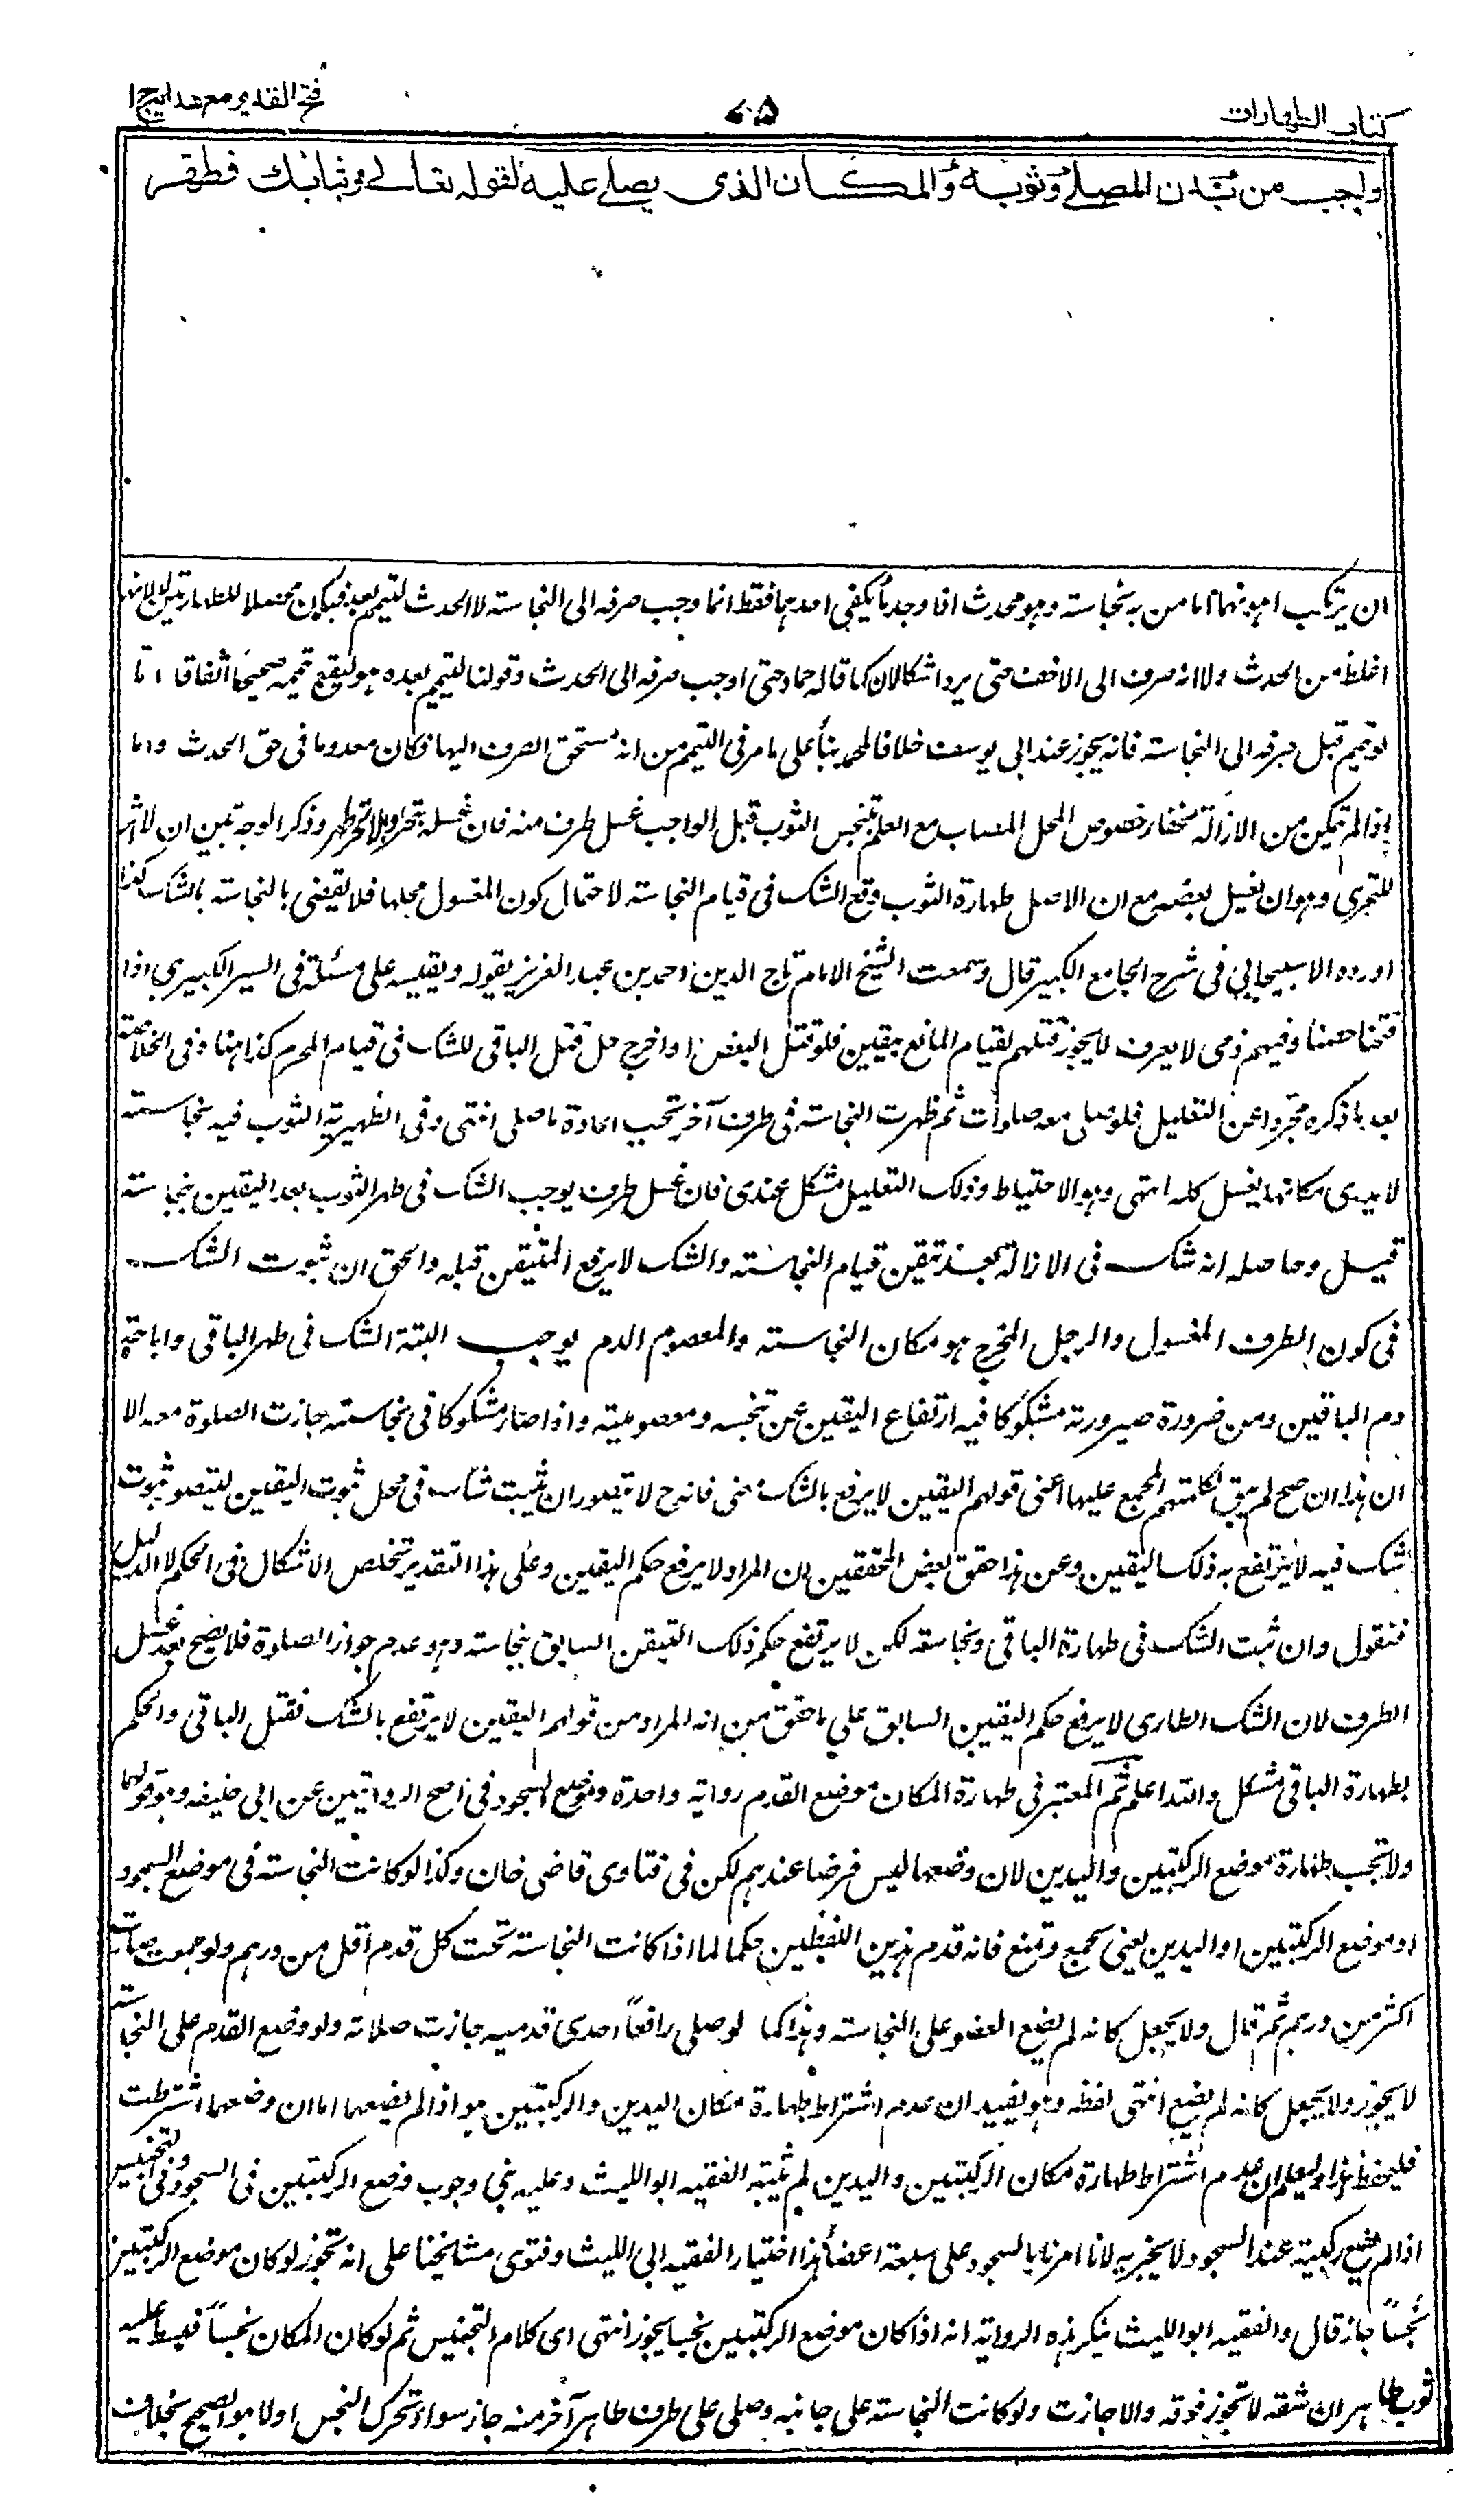 كتاب الطهارات
٧٥
فتح القدير مع هدايه ج ا
واجب من بدن المصلى وثوبه والمكان الذى يصلى عليه لقوله تعالى وثيابك فطهر
ان يرتكب اهونهما اما من به نجاسته وهو محدث اذا وجد ما يكفى احدهما فقط انما وجب صرفه الى النجاسته لا الحدث ليتيمم بعد فيكون محصلا للطهارتين لا لانها
اغلظ من الحدث ولا انه صرف الى الاخف حتى يرد اشكالا كما قاله حماد حتى اوجب صرفه الى الحدث وقولنا ليتيمم بعده هو ليقع تيممه صحيحا اتفاقا اما
لو تيمم قبل صرفه الى النجاسته فانه يجوز عند ابى يوسف خلافا لمحمد بناً على ما مر فى التيمم من انه مستحق الصرف اليها فكان معدوما فى حق الحدث واما
اذا لم يتمكن من الازالة لخفاء خصوص المحل المصاب مع العلم بتنجس الثوب قيل الواجب غسل طرف منه فان غسله بتحر او بلا تحر طهر وذكر الوجه يبين ان لا اثر
للتحرى وهو ان يغسل بعضه مع ان الاصل طهارة الثوب وقع الشك فى قيام النجاسته لاحتمال كون المغسول محلها فلا يقضى بالنجاسته بالشك كذا
اورده الاسبيجابى فى شرح الجامع الكبير قال وسمعت الشيخ الامام تاج الدين احمد بن عبد العزيز يقوله ويقيسه على مسئلة فى السير الكبير هى اذا
فتحنا حصنا وفيهم ذمى لا يعرف لا يجوز قتلهم لقيام المانع بيقين فلو قتل البعض او اخرج حل قتل الباقى للشك فى قيام المحرم كذا هنا وفى الخلاصته
بعد ما ذكره مجردا عن التعليل فلو صلى معه صلوات ثم ظهرت النجاسته فى طرف آخر تجب اعادة ما صلى انتهى وفى الظهيرية الثوب فيه نجاسته
لا يدرى مكانها يغسل كله انتهى وهو الاحتياط وذلك التعليل مشكل عندى فان غسل طرف يوجب الشك فى طهر الثوب بعد اليقين بنجاسته
قبل وحاصله انه شك فى الازالة بعد تيقن قيام النجاسته والشك لا يرفع المتيقن قبله والحق ان ثبوت الشك
فى كون الطرف المغسول والرجل المخرج هو مكان النجاسته والمعصوم الدم يوجب البتة الشك فى طهر الباقى واباحة
دم الباقين ومن ضرورة صيرورته مشكوكا فيه ارتفاع اليقين عن تنجسه ومعصوميته واذا صار مشكوكا فى نجاسته جازت الصلوة معه الا
ان هذا ان صح لم يبق لكلمتهم المجمع عليها اعنى قولهم اليقين لا يرفع بالشك معنى فانه ح لا يتصور ان يثبت شك فى محل ثبوت اليقين ليتصور ثبوت
شك فيه لا يرتفع به ذلك اليقين وعن هذا حقق بعض المحققين ان المراد لا يرفع حكم اليقين وعلى هذا التقدير يتخلص الاشكال فى الحكم لا الدليل
فنقول وان ثبت الشك فى طهارة الباقى ونجاسته لكن لا يرتفع حكم ذلك التيقن السابق بنجاسته وهو عدم جواز الصلوة فلا يصح بعد غسل
الطرف لان الشك الطارى لا يرفع حكم اليقين السابق على ما حقق من انه المراد من قولهم اليقين لا يرتفع بالشك فقتل الباقى والحكم
بطهارة الباقى مشكل والله اعلم ثم المعتبر فى طهارة المكان موضع القدم رواية واحدة وموضع السجود فى اصح الروايتين عن ابى حنيفه وهو قولهما
ولا تجب طهارة موضع الركبتين واليدين لان وضعهما ليس فرضا عندهم لكن فى فتاوى قاضى خان وكذا لو كانت النجاسته فى موضع السجود
او موضع الركبتين او اليدين يعنى تجمع وتمنع فانه قدم هذين اللفظين حكما لما اذا كانت النجاسته تحت كل قدم اقل من درهم ولو جمعت صارت
اكثر من درهم ثم قال ولا يجعل كانه لم يضع العضو على النجاسته وهذا كما لو صلى رافعاً احدى قدميه جازت صلاته ولو وضع القدم على النجاسته
لا يجوز ولا يجعل كانه لم يضع انتهى لفظه وهو يفيد ان عدم اشتراط طهارة مكان اليدين والركبتين هو اذا لم يضعهما اما ان وضعهما اشترطت
فليحفظ هذا وليعلم ان عدم اشتراط طهارة مكان الركبتين واليدين لم يثبته الفقيه ابو الليث وعليه بنى وجوب وضع الركبتين فى السجود وفى التجنيس
اذا لم يضع ركبتيه عند السجود لا يجزيه لانا امرنا بالسجود على سبعة اعضاً هذا اختيار الفقيه ابى الليث وفتوى مشايخنا على انه تجوز لو كان موضع الركبتين
نجساً جاز قال والفقيه ابو الليث ينكر هذه الرواية انه اذا كان موضع الركبتين نجسا يجوز انتهى اى كلام التجنيس ثم لو كان المكان نجساً فبسط عليه
ثوب طاهر ان شفه لا تجوز فوقه والا جازت ولو كانت النجاسته على جانبه وصلى على طرف طاهر آخر منه جاز سواء تحرك النجس اولا هو الصحيح بخلاف